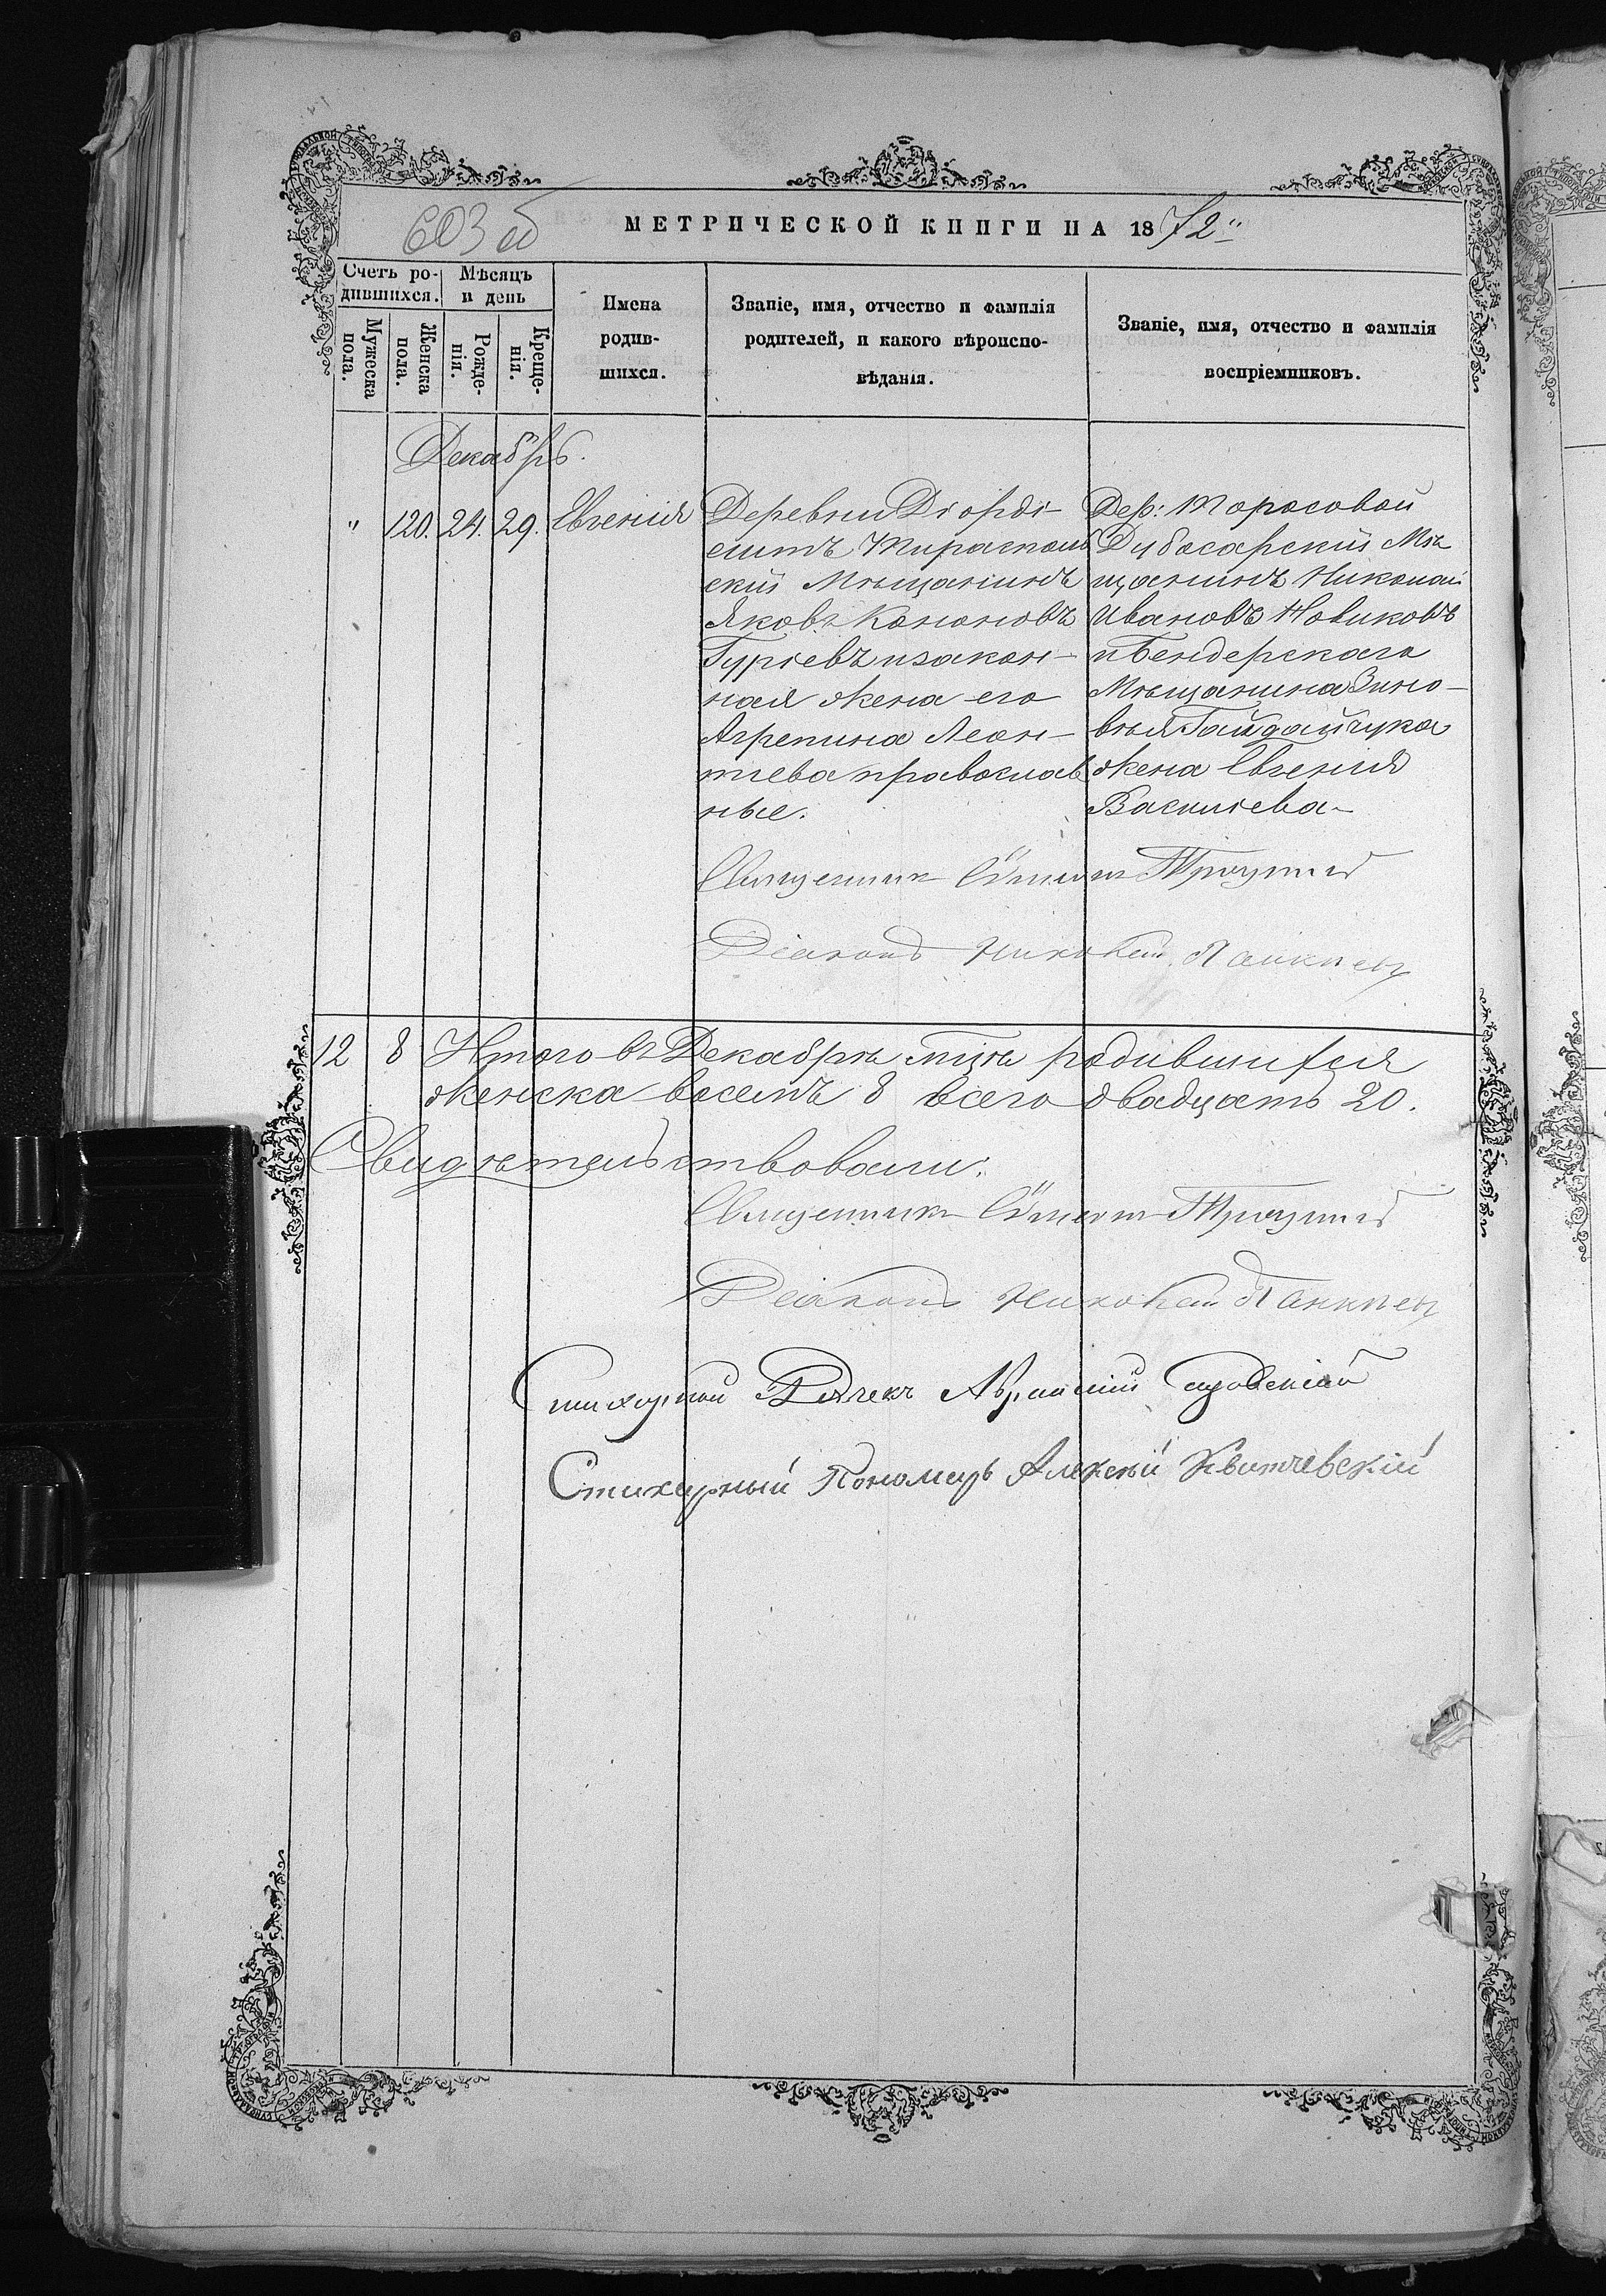 603 об
МЕТРИЧЕСКОЙ КНИГИ НА 1872
Счетъ ро-
дившихся.
Мѣсяцъ
и день
Мужеска
пола.
Женска
пола.
Рожде-
нія.
Креще-
нія.
Имена
родив-
шихся.
Званіе, имя, отчество и фамилія
родителей, и какого вѣроиспо-
вѣданія.
Званіе, имя, отчество и фамилія
воспріемниковъ.
Декабрь.
" 120. 24. 29. Евгенія
Деревни Діорді-
ештъ Тираспол
скій Мѣщанинъ
Яковъ Кононовъ
Гуріевъ и закон-
ная жена его
Агрепина Леон-
тіева православ
ные.
Дер: Торосовой
Дубосарскій Мѣ
щанинъ Николай
Ивановъ Новиковъ
и Бендерскаго
Мѣщанина Зино-
вія Гайдайчука
жена Евгенія
Василіева
Священник
Діаконъ Николай
12 8 Итого въ Декабрѣ мцѣ родившихся
женска восемъ 8 всего двадцать 20.
Свидѣтельствовали:
Священник
Діаконъ Николай
Стихарный Дячекъ
Стихарный Пономарь Алексѣй Квитчевскій